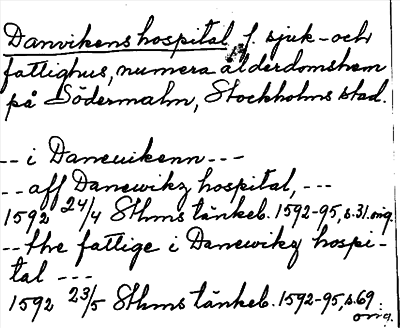 Danvikens hospital, f. sjuk- och
fattighus, numera ålderdomshem
på Södermalm, Stockholms stad.
-- i Daneuikenn ---
-- aff Danewikz hospital, ---
1592 24/4 Sthms tänkeb. 1592-95, s. 31. orig.
-- the fattige i Danewikz hospi-
tal ---
1592 23/5 Sthms tänkeb. 1592-95, s. 69.
orig.